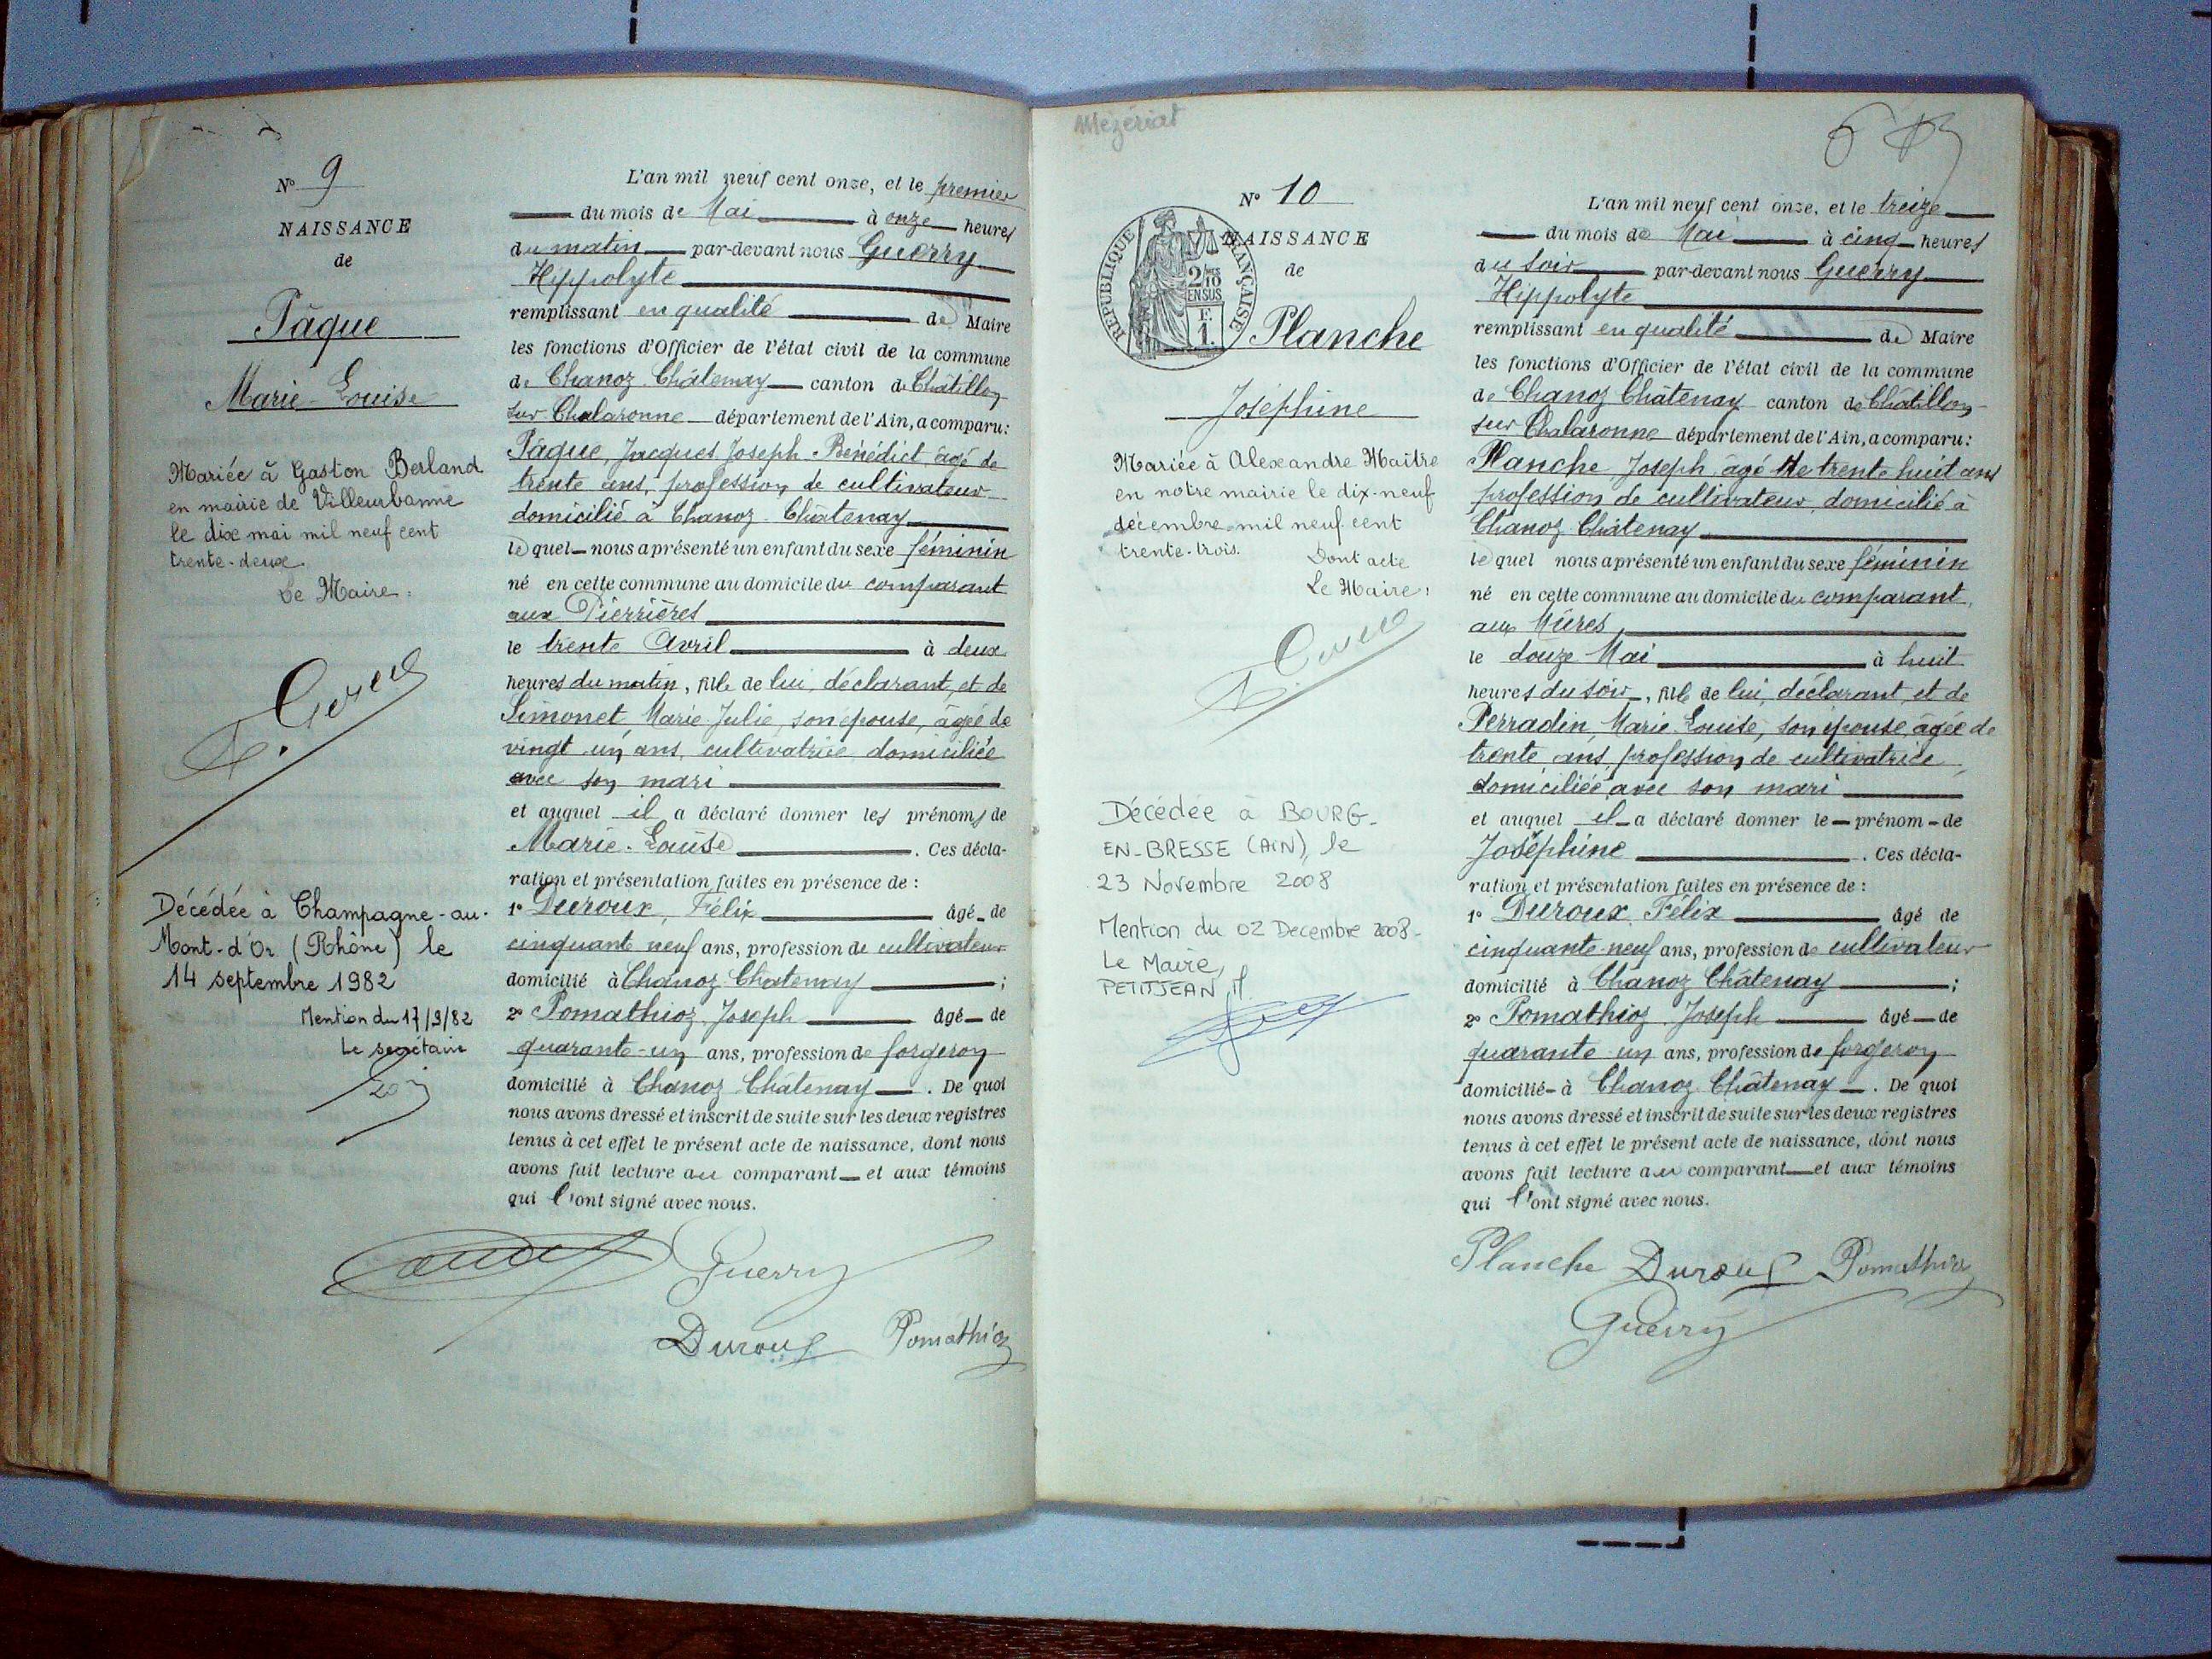 N° 9
NAISSANCE
de
Pâque
Marie-Louise
Mariée à Gaston Berland
en mairie de Villeurbanne
le dix mai mil neuf cent
trente-deux.
Le Maire :
Décédée à Champagne-au-
Mont-d'Or (Rhône) le
14 septembre 1982
Mention du 17/9/82
Le secrétaire
L'an mil neuf cent onze, et le premier
du mois de Mai à onze heures
du matin par-devant nous Guerry
Hippolyte
remplissant en qualité de Maire
les fonctions d'Officier de l'état civil de la commune
de Chanoz-Châtenay canton de Châtillon
sur Chalaronne département de l'Ain, a comparu :
Pâque, Jacques Joseph Bénédict, âgé de
trente ans, profession de cultivateur
domicilié à Chanoz-Châtenay
lequel nous a présenté un enfant du sexe féminin
né en cette commune au domicile du comparant
aux Pierrières
le trente Avril à deux
heures du matin, fille de lui, déclarant, et de
Simonet, Marie Julie, son épouse, âgée de
vingt-un ans, cultivatrice domiciliée
avec son mari
et auquel il a déclaré donner les prénoms de
Marie-Louise. Ces décla-
ration et présentation faites en présence de :
1° Duroux, Félix âgé de
cinquante neuf ans, profession de cultivateur
domicilié à Chanoz-Châtenay ;
2° Pomathioz Joseph âgé de
quarante-un ans, profession de forgeron
domicilié à Chanoz-Châtenay. De quoi
nous avons dressé et inscrit de suite sur les deux registres
tenus à cet effet le présent acte de naissance, dont nous
avons fait lecture au comparant et aux témoins
qui l'ont signé avec nous.
Guerry
Duroux Pomathioz
Mézériat
N° 10
NAISSANCE
de
RÉPUBLIQUE FRANÇAISE
2/10
EN SUS
F.
1.
Planche
Joséphine
Mariée à Alexandre Maître
en notre mairie le dix-neuf
décembre mil neuf cent
trente-trois.
Dont acte
Le Maire :
Décédée à BOURG-
EN-BRESSE (AIN), le
23 Novembre 2008
Mention du 02 Decembre 2008.
Le Maire,
PETITJEAN
L'an mil neuf cent onze, et le treize
du mois de Mai à cinq heures
du soir par-devant nous Guerry
Hippolyte
remplissant en qualité de Maire
les fonctions d'Officier de l'état civil de la commune
de Chanoz Châtenay canton de Châtillon
sur Chalaronne département de l'Ain, a comparu :
Planche, Joseph, âgé de trente huit ans
profession de cultivateur, domicilié à
Chanoz Châtenay
lequel nous a présenté un enfant du sexe féminin
né en cette commune au domicile du comparant,
aux Mûres
le douze Mai à huit
heures du soir, fille de lui, déclarant, et de
Perradin, Marie Louise, son épouse, âgée de
trente ans, profession de cultivatrice,
domiciliée avec son mari
et auquel il a déclaré donner le prénom de
Joséphine. Ces décla-
ration et présentation faites en présence de :
1° Duroux Félix âgé de
cinquante-neuf ans, profession de cultivateur
domicilié à Chanoz Châtenay ;
2° Pomathioz Joseph âgé de
quarante un ans, profession de forgeron
domicilié à Chanoz Châtenay. De quoi
nous avons dressé et inscrit de suite sur les deux registres
tenus à cet effet le présent acte de naissance, dont nous
avons fait lecture au comparant et aux témoins
qui l'ont signé avec nous.
Planche Duroux Pomathioz
Guerry